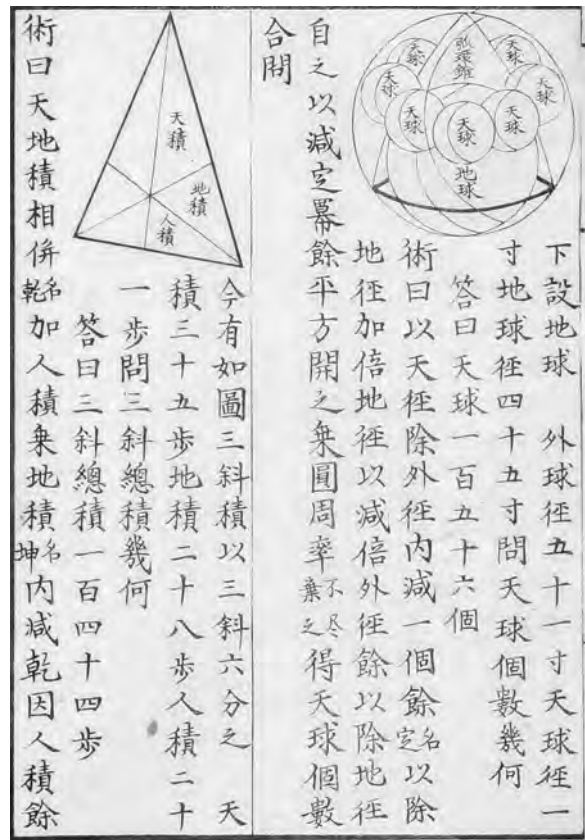 弧環錐
天球
天球
天球
天球
天球
天球
天球
地球
下設地球 外球径五十一寸天球径一
寸地球径四十五寸問天球個數幾何
答曰天球一百五十六個
術曰以天径除外径内減一個餘名定以除
地径加倍地径以減倍外径餘以除地径
自之以減定冪餘平方開之乗圓周率不尽棄之得天球個數
合問
天積
地積
人積
今有如圖三斜積以三斜六分之 天
積三十五歩地積二十八歩人積二十
一歩問三斜總積幾何
答曰三斜總積一百四十四歩
術曰天地積相併名乾加人積乗地積名坤内减乾因人積餘